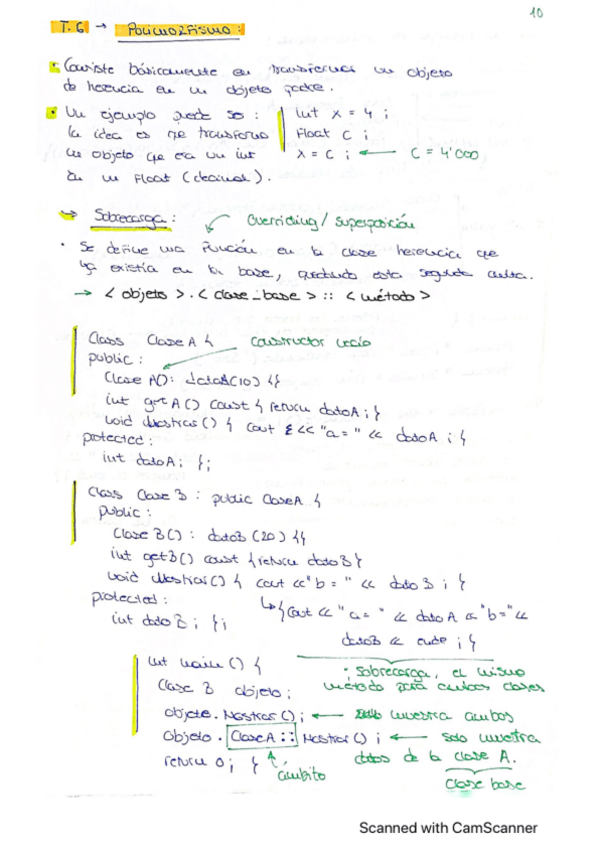 10
T. 6 → POLIMORFISMO :
· Consiste básicamente en transformar un objeto
de herencia en un objeto padre.
· Un ejemplo puede ser : int x = 4 ;
la idea es que transforma float c ;
un objeto que era un int x = c ; ← c = 4'000
en un float (decimal).
→ Sobrecarga : Overriding / superposición
· Se define una función en la clase herencia que
ya existía en la base, quedando esta segunda oculta.
→ < objeto > . < clase_base > :: < método >
Class Clase A { constructor vacío
public :
Clase A() : datoA(10) {}
int getA() const { return datoA ; }
void Mostrar() { cout << "a = " << datoA ; }
protected :
int datoA ; };
Class Clase B : public ClaseA {
public :
Clase B() : datoB (20) {}
int getB() const { return datoB }
void Mostrar() { cout << "b = " << dato B ; }
protected : ↳ { cout << "a = " << dato A << "b =" <<
int dato B ; }; datoB << endl ; }
int main () { ; sobrecarga, el mismo
Clase B objeto ; método para ambas clases
objeto . Mostrar() ; ← muestra ambos
Objeto . ClaseA :: Mostrar() ; ← solo muestra
return 0 ; } ámbito datos de la clase A.
clase base
Scanned with CamScanner